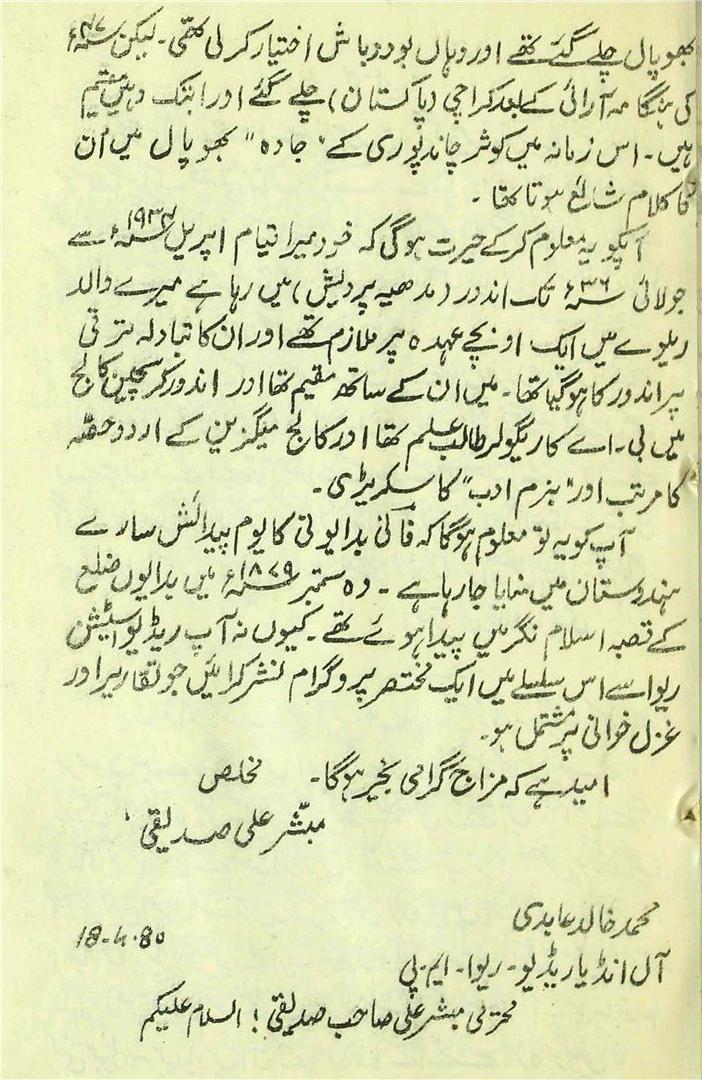 بھوپال چلے گئے تھے اور وہاں بود و باش اختیار کر لی تھی۔ لیکن ۴۷ء
کی ہنگامہ آرائی کے بعد کراچی (پاکستان) چلے گئے اور ابتک وہیں مقیم
ہیں۔ اس زمانہ میں کوثر چاندپوری کے "جادہ" بھوپال میں اُن
کا کلام شائع ہوتا تھا۔
آپکو یہ معلوم کرکے حیرت ہوگی کہ خود میرا قیام اپریل ۱۹۳۴ء سے
جولائی ۳۶ء تک اندور (مدھیہ پردیش) میں رہا ہے میرے والد
ریلوے میں ایک اونچے عہدہ پر ملازم تھے اور ان کا تبادلہ ترقی
پر اندور کا ہوگیا تھا۔ میں ان کے ساتھ مقیم تھا اور اندور کرسچین کالج
میں بی۔اے کا ریگولر طالب علم تھا اور کالج میگزین کے اردو حصّہ
کا مرتب اور "بزم ادب" کا سکریٹری۔
آپ کو یہ تو معلوم ہوگا کہ فانی بدایونی کا یوم پیدائش سارے
ہندوستان میں منایا جارہا ہے۔ وہ ستمبر ۱۸۷۹ء میں بدایوں ضلع
کے قصبہ اسلام نگر میں پیدا ہوئے تھے۔ کیوں نہ آپ ریڈیو اسٹیشن
ریوا سے اس سلسلے میں ایک مختصر پروگرام نشر کرائیں جو تقاریر اور
غزل خوانی پر مشتمل ہو۔
امید ہے کہ مزاج گرامی بخیر ہوگا۔ مخلص
مبشّر علی صدیقی
محمد خالد عابدی
18-4-80
آل انڈیا ریڈیو۔ ریوا۔ ایم۔پی
محترمی مبشر علی صاحب صدیقی! السلام علیکم